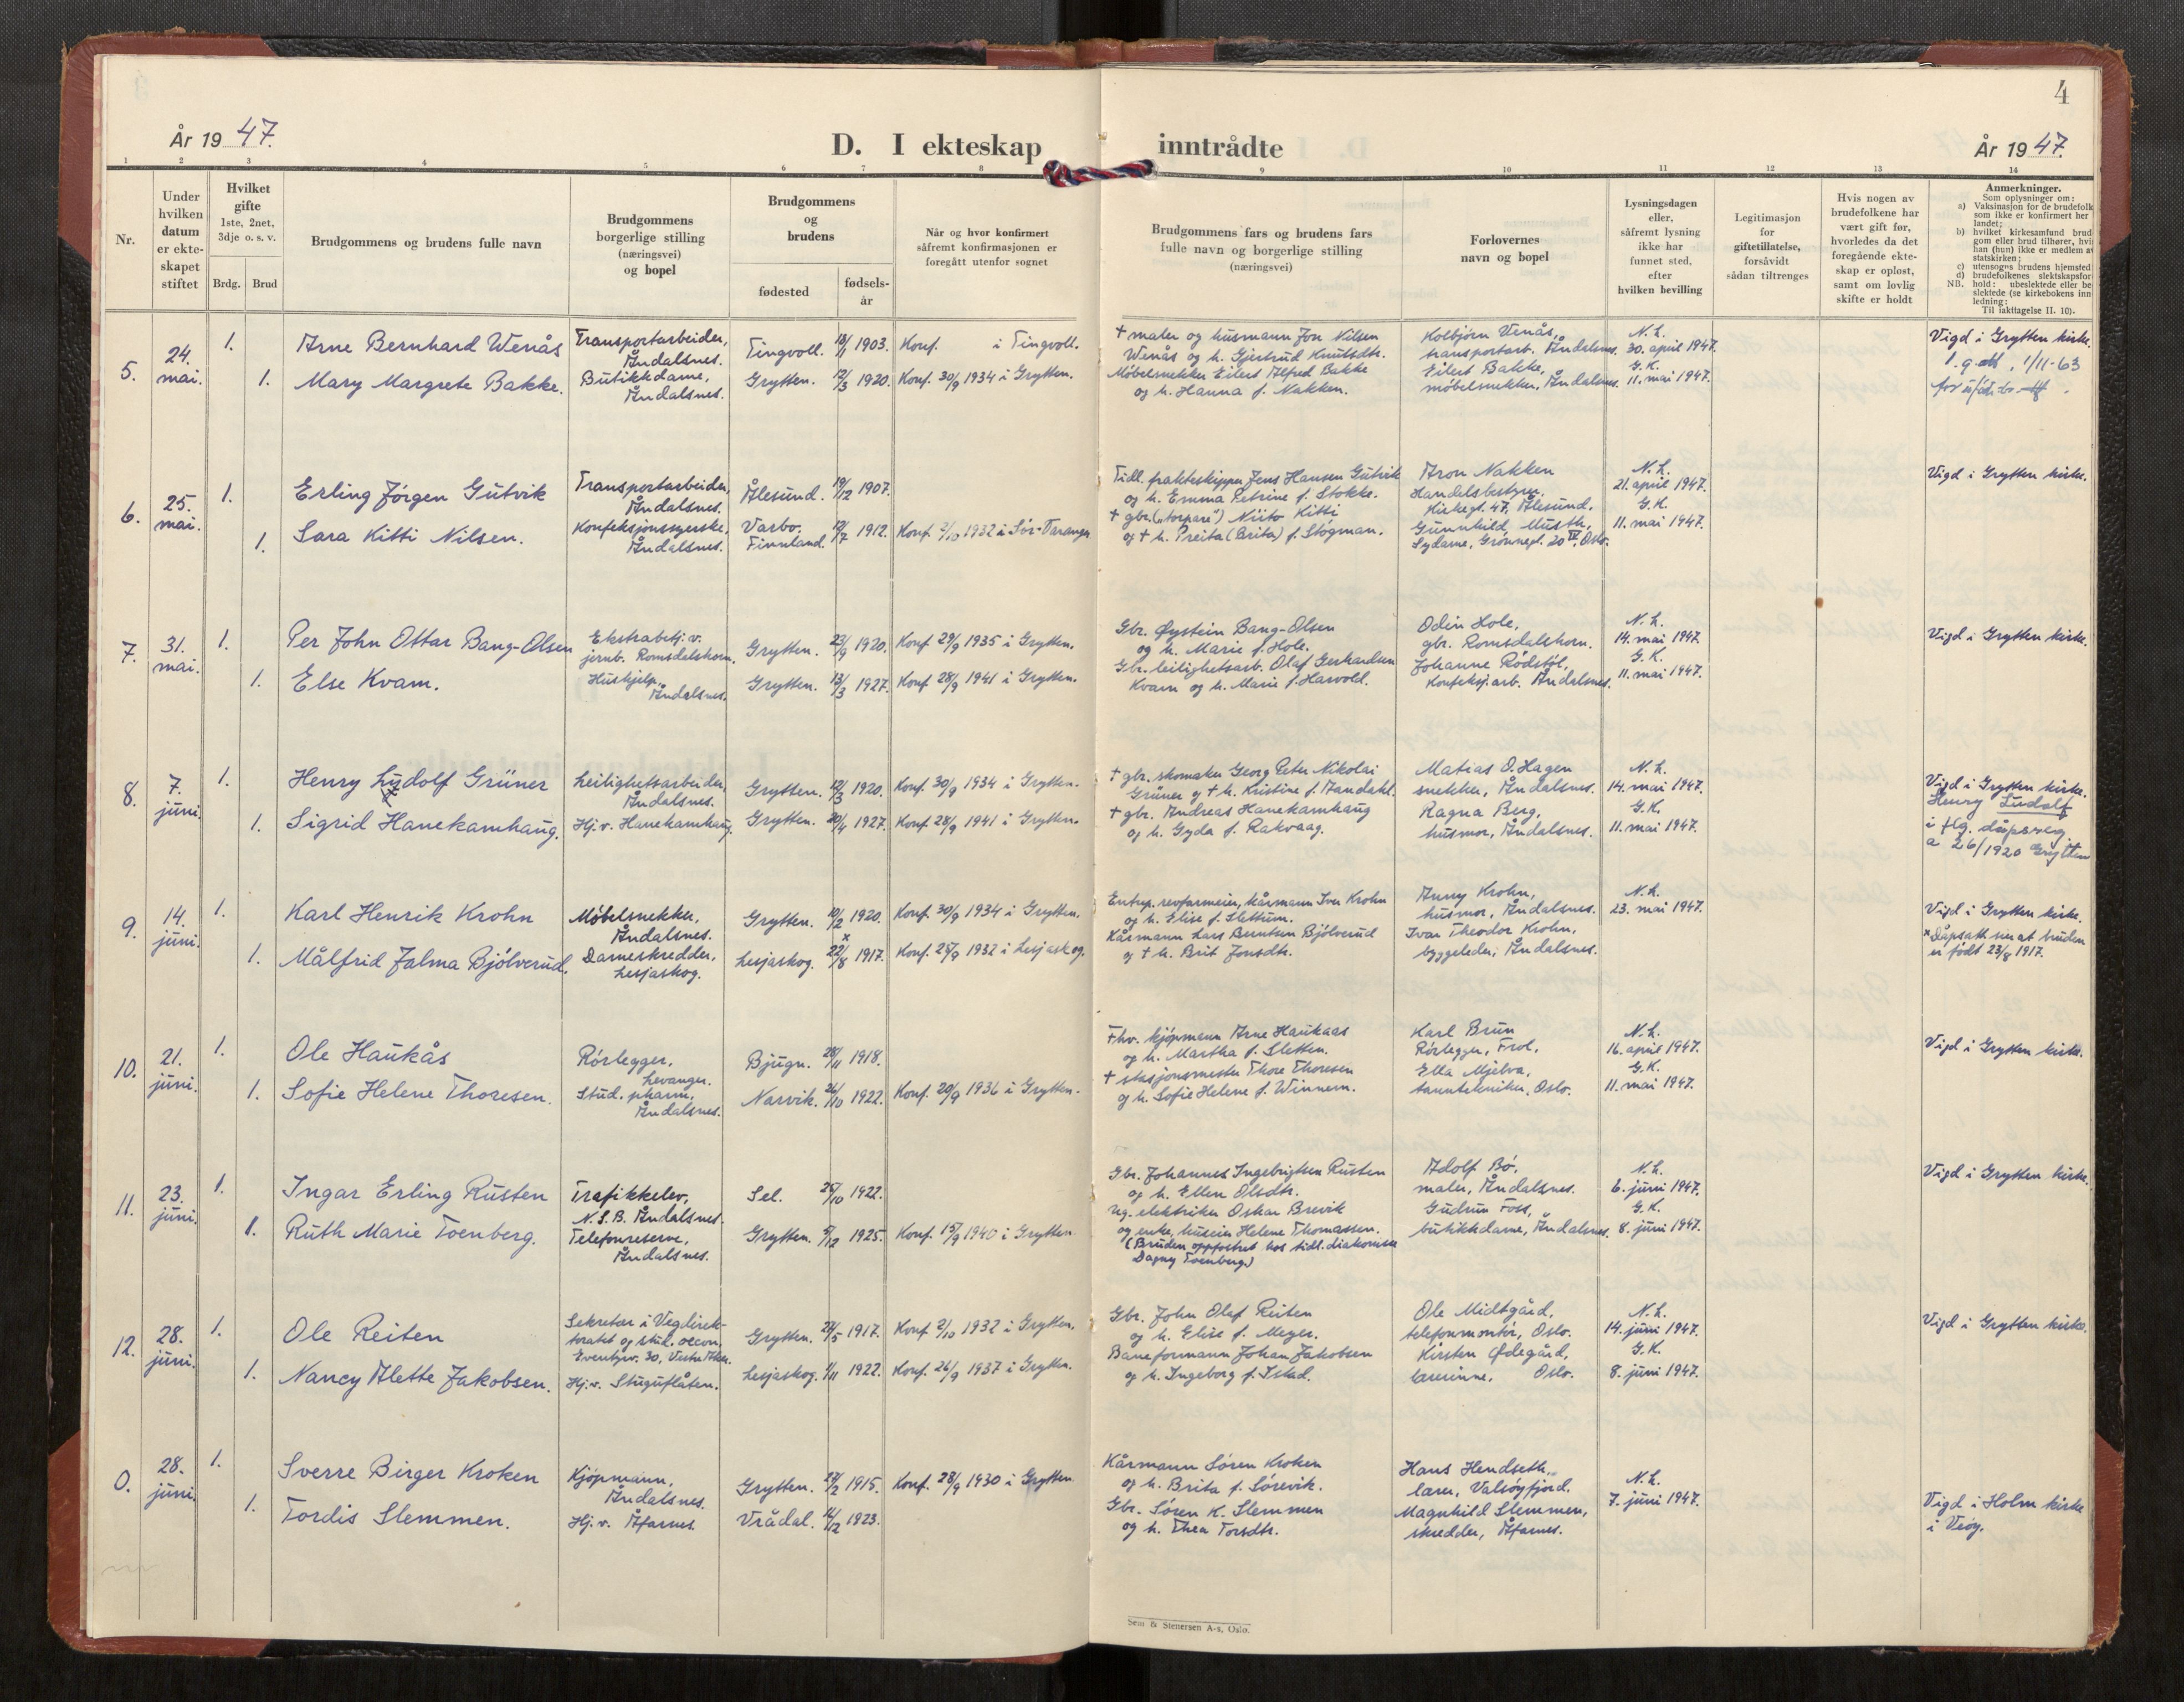 4
År 1947.
D. I ekteskap inntrådte
År 1947.
1 2 3 4 5 6 7 8 9 10 11 12 13 14
Nr.
Under hvilken datum er ekte-skapet stiftet
Hvilket gifte 1ste, 2net, 3dje o. s. v.
Brdg. Brud
Brudgommens og brudens fulle navn
Brudgommens borgerlige stilling (næringsvei) og bopel
Brudgommens og brudens
fødested
fødsels-år
Når og hvor konfirmert såfremt konfirmasjonen er foregått utenfor sognet
Brudgommens fars og brudens fars fulle navn og borgerlige stilling (næringsvei)
Forlovernes navn og bopel
Lysningsdagen eller, såfremt lysning ikke har funnet sted, efter hvilken bevilling
Legitimasjon for giftetillatelse, forsåvidt sådan tiltrenges
Hvis nogen av brudefolkene har vært gift før, hvorledes da det foregående ekte-skap er opløst, samt om lovlig skifte er holdt
Anmerkninger.
Som oplysninger om:
a) Vaksinasjon for de brudefolk som ikke er konfirmert her i landet;
b) hvilket kirkesamfund brudgom eller brud tilhører, hvis han (hun) ikke er medlem av statskirken;
c) utensogns brudens hjemsted
d) brudefolkenes slektskapsforhold: ubeslektede eller beslektede (se kirkebokens innledning:
NB. Til iakttagelse II. 10).
5. 24. mai. 1. Arne Bernhard Wenås Transportarbeider, Åndalsnes. Tingvoll. 18/11 1903. Konf. i Tingvoll.
1. Mary Margrete Bakke. Butikkdame, Åndalsnes. Grytten. 12/3 1920. Konf. 30/9 1934 i Grytten.
† maler og husmann Jon Nilsen Wenås og h. Gjertrud Knutsdtr.
Møbelsnekker Eilert Alfred Bakke og h. Hanna f. Nakken.
Kolbjørn Venås, transportarb. Åndalsnes.
Eilert Bakke, møbelsnekker, Åndalsnes.
N. L. 30. april 1947.
G. K. 11. mai 1947.
Vigd i Grytten kirke.
1/11-63
6. 25. mai. 1. Erling Jörgen Gutvik Transportarbeider, Åndalsnes. Ålesund. 19/12 1907.
1. Sara Kitti Nilsen. Konfeksjonssyerske, Åndalsnes. Varbo. Finnland. 12/7 1912. Konf. 2/10 1932 i Sör-Varanger
Tidl. frakteskipper Jens Hansen Gutvik og h. Emma Petrine f. Stokke.
† gbr. („torpare") Niito Kitti og † h. Preita (Brita) f. Stögman.
Aron Nakken Handelsbestyrer, Kirkegt. 47, Ålesund.
Gunnhild Musth, Sydame, Grönnegt. 20 IV, Oslo.
N. L. 21. april 1947.
G. K. 11. mai 1947.
Vigd i Grytten kirke.
7. 31. mai. 1. Per John Ottar Bang-Olsen Ekstrabetj. v. jernb. Romsdalshorn. Grytten. 23/9 1920. Konf. 29/9 1935 i Grytten.
1. Else Kvam. Hushjelp. Åndalsnes. Grytten. 13/3 1927. Konf. 28/9 1941 i Grytten.
Gbr. Øystein Bang-Olsen og h. Marie f. Hole.
Gbr. leilighetsarb. Olaf Gerhardsen Kvam og h. Marie f. Harvold.
Odin Hole, gbr. Romsdalshorn.
Johanne Rödstöl, Konfeksj.arb. Åndalsnes.
N. L. 14. mai 1947.
G. K. 11. mai 1947.
Vigd i Grytten kirke.
8. 7. juni. 1. Henry Ludolf Grüner Leilighetsarbeider, Åndalsnes. Grytten. 12/3 1920. Konf. 30/9 1934 i Grytten.
1. Sigrid Hanekamhaug. Hj. v. Hanekamhaug. Grytten. 20/4 1927. Konf. 28/9 1941 i Grytten.
† gbr. skomaker Georg Peter Nikolai Grüner og † h. Kristine f. Aandahl.
† gbr. Andreas Hanekamhaug og h. Gyda f. Rakvaag.
Matias O. Hagen snekker, Åndalsnes.
Ragna Berg, husmor, Åndalsnes.
N. L. 14. mai 1947.
G. K. 11. mai 1947.
Vigd i Grytten kirke.
Henry Ludolf i flg. dåpsreg. a 26/1920 Grytten
9. 14. juni. 1. Karl Henrik Krohn Møbelsnekker, Åndalsnes. Grytten. 10/2 1920. Konf. 30/9 1934 i Grytten.
1. Målfrid Jalma Bjölverud. Dameskredder, Lesjaskog. Lesjaskog. x 22/8 1917. Konf. 25/9 1932 i Lesjaskog.
Entrep. revfarmeier, kårmann Iver Krohn og h. Elise f. Slettum.
Kårmann Lars Berntsen Bjölverud og † h. Brit Jonsdtr.
Anny Krohn, husmor, Åndalsnes.
Ivar Theodor Krohn, byggeleder, Åndalsnes.
N. L. 23. mai 1947.
Vigd i Grytten kirke.
x Dåpsatt. viser at bruden er født 23/8 1917.
10. 21. juni. 1. Ole Haukås Rörlegger, Levanger. Bjugn. 28/11 1918.
1. Sofie Helene Thoresen. Stud. pharm., Åndalsnes. Narvik. 26/10 1922. Konf. 20/9 1936 i Grytten.
Fhv. kjöpmann Arne Haukaas og h. Martha f. Sletten.
† stasjonsmester Thore Thoresen og h. Sofie Helene f. Winnem.
Karl Brun Rörlegger, Frol.
Ella Mjelva, tanntekniker, Oslo.
N. L. 16. april 1947.
G. K. 11. mai 1947.
Vigd i Grytten kirke.
11. 23. juni. 1. Ingar Erling Rusten Trafikkelev, N. S. B. Åndalsnes. Sel. 25/10 1922.
1. Ruth Marie Toenberg. Telefonreserve, Åndalsnes. Grytten. 5/12 1925. Konf. 15/9 1940 i Grytten.
Gbr. Johannes Ingebrigtsen Rusten og h. Ellen Olsdtr.
ug. elektriker Oskar Brevik og enke, huseier Helene Thomassen.
(Bruden oppfostret hos tidl. diakonisse Dagny Toenberg)
Adolf Bö, maler, Åndalsnes.
Gudrun Foss, butikkdame, Åndalsnes.
N. L. 6. juni 1947.
G. K. 8. juni 1947.
Vigd i Grytten kirke.
12. 28. juni. 1. Ole Reiten Sekretær i Vegdirektoratet og stud. oecon. Eventyrv. 30, Vestre Aker. Grytten. 24/5 1917. Konf. 2/10 1932 i Grytten.
1. Nancy Alette Jakobsen. Hj. v. Stuguflåten. Lesjaskog. 1/11 1922. Konf. 26/9 1937 i Grytten.
Gbr. John Olaf Reiten og h. Elise f. Meyer.
Baneformann Johan Jakobsen og h. Ingeborg f. Istad.
Ole Midtgård, telefonmontör, Oslo.
Kirsten Ødegård, lærerinne, Oslo.
N. L. 14. juni 1947.
G. K. 8. juni 1947.
Vigd i Grytten kirke.
0. 28. juni. 1. Sverre Birger Kroken Kjöpmann, Åndalsnes. Grytten. 27/2 1915. Konf. 28/9 1930 i Grytten.
1. Tordis Slemmen. Hj. v. Åfarnes. Vrådal. 4/12 1923.
Kårmann Sören Kroken og h. Brita f. Sörevik.
Gbr. Sören K. Slemmen og h. Thea Torsdtr.
Hans Hendseth, lærer, Valsöyfjord.
Magnhild Slemmen, skredder, Åfarnes.
N. L. 7. juni 1947.
Vigd i Holm kirke i Veöy.
Sem & Stenersen A-s, Oslo.